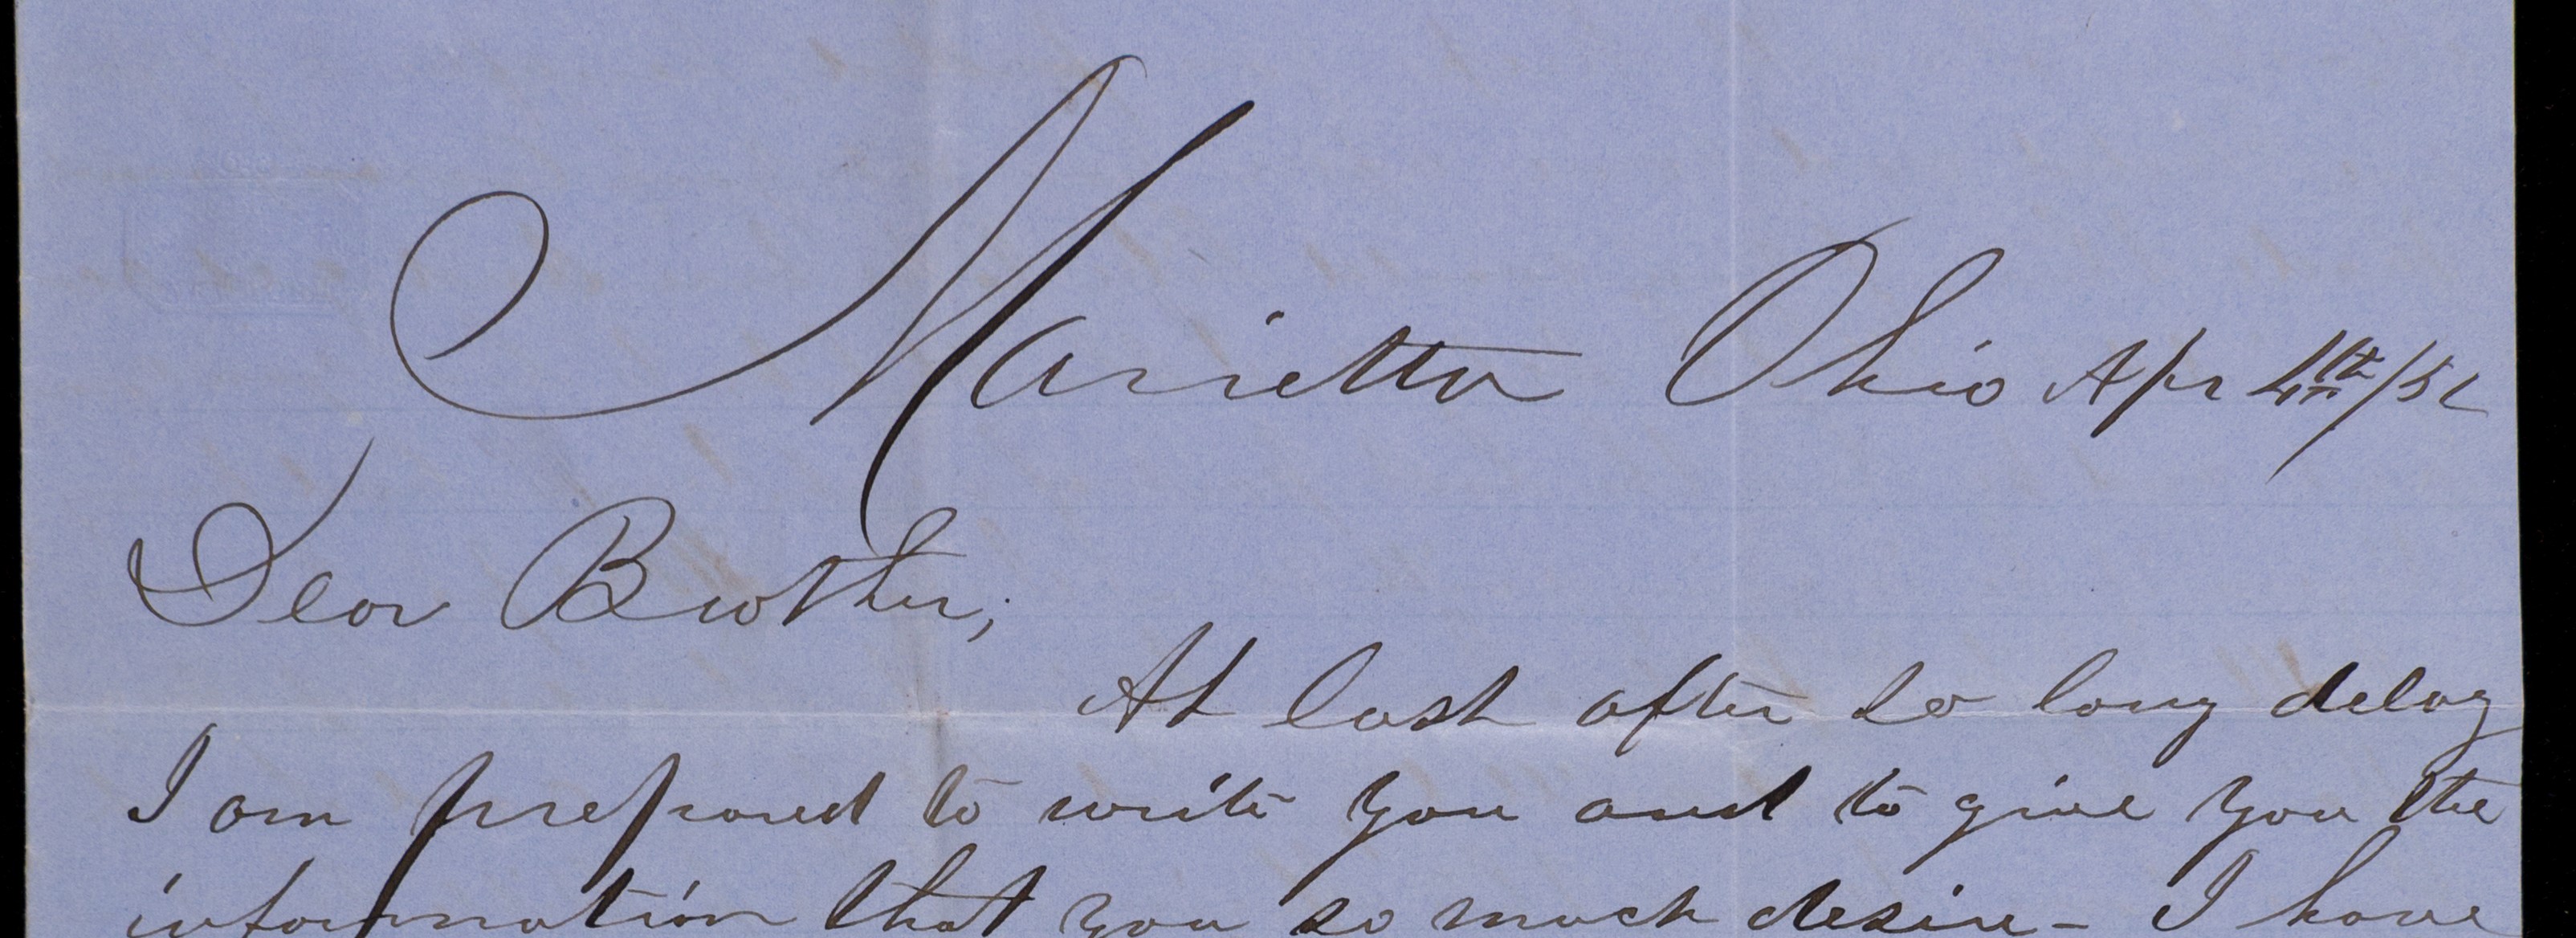 Marietta Ohio Apr 4th/52
Dear Brother;
At last after so long delay
I am prepared to write you and to give you the
information that you so much desire - I have